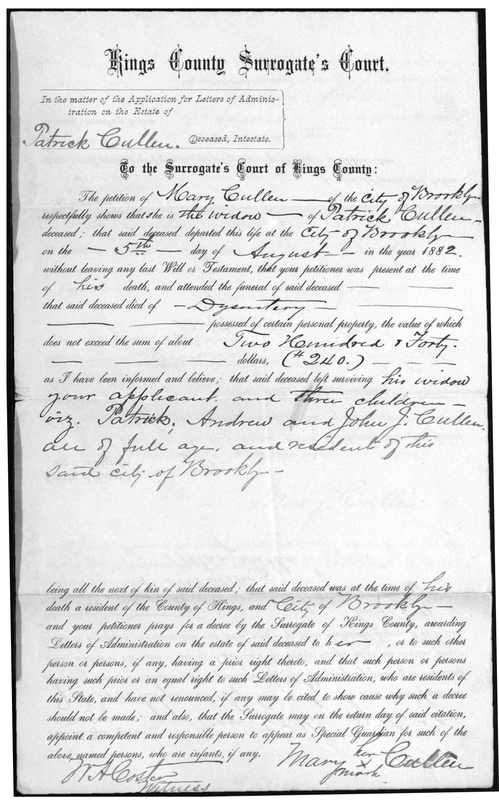 Kings County Surrogate's Court.
In the matter of the Application for Letters of Adminis-
tration on the Estate of
Patrick Cullen. Deceased, Intestate.
To the Surrogate's Court of Kings County:
The petition of Mary Cullen of the City of Brooklyn
respectfully shows that she is the widow of Patrick Cullen
deceased; that said deceased departed this life at the City of Brooklyn
on the 5th day of August in the year 1882.
without leaving any last Will or Testament, that your petitioner was present at the time
of his death, and attended the funeral of said deceased
that said deceased died of Dysentery
possessed of certain personal property, the value of which
does not exceed the sum of about Two Hundred & Forty.
dollars, ($240.)
as I have been informed and believe; that said deceased left surviving his widow
your applicant and three children
viz. Patrick, Andrew and John J. Cullen
all of full age, and resident of this
said city of Brooklyn
being all the next of kin of said deceased; that said deceased was at the time of his
death a resident of the County of Kings, and City of Brooklyn
and your petitioner prays for a decree by the Surrogate of Kings County, awarding
Letters of Administration on the estate of said deceased to her , or to such other
person or persons, if any, having a prior right thereto, and that such person or persons
having such prior or an equal right to such Letters of Administration, who are residents of
this State, and have not renounced, if any may be cited to show cause why such a decree
should not be made; and also, that the Surrogate may on the return day of said citation,
appoint a competent and responsible person to appear as Special Guardian for such of the
above named persons, who are infants, if any.
her
Mary x Cullen
mark
Witness